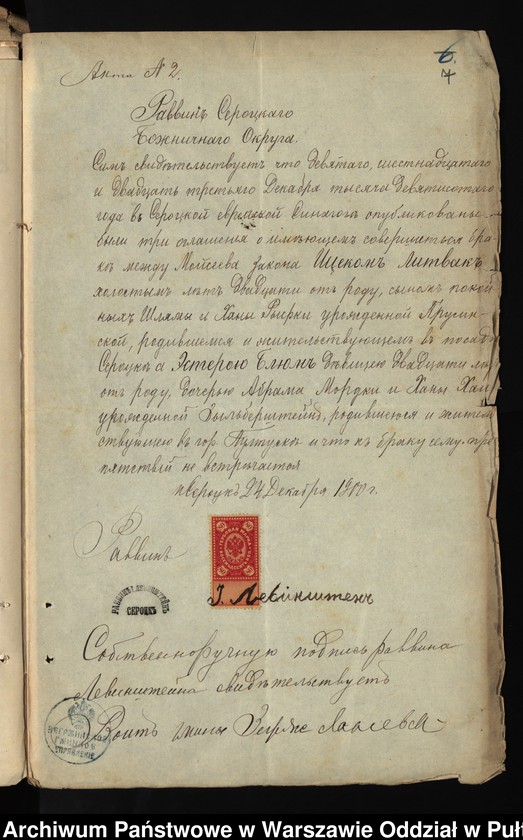 6.
7
Акта N 2.
Раввинъ Сероцкаго
Божничнаго Округа.
Симъ свидѣтельствуетъ что девятаго, шестнадцатаго
и двадцать третьяго Декабря тысяча девятисотаго
года въ Сероцкой еврейской Синагогѣ опубликованы
были три оглашенія о имѣющемъ совершиться бра-
кѣ между Моисеева закона Ицекомъ Литвакъ
холостымъ лѣтъ двадцати отъ роду, сыномъ покой
ныхъ Шлямы и Ханы Рыфки урожденной Прусин-
ской, родившемся и жительствующемъ въ посадѣ
Сероцкъ а Эстерою Блюмъ дѣвицею двадцати лѣтъ
отъ роду, дочерью Абрама Мордки и Ханы Хаи
урожденной Зыльберштейнъ, родившеюся и житель
ствующею въ гор. Пултускѣ и что къ браку сему пре
пятствій не встрѣчается
Сероцкъ 24 Декабря 1900 г.
Раввинъ
І. Левинштенъ
РАВВИНЪ І. ЛЕВИНШТЕЙНЪ
СЕРОЦКЪ
Собственноручную подпись раввина
Левинштейна свидѣтельствуетъ
Войтъ гмины Зегрже
УПРАВЛЕНІЕ
Archiwum Państwowe w Warszawie Oddział w Puł